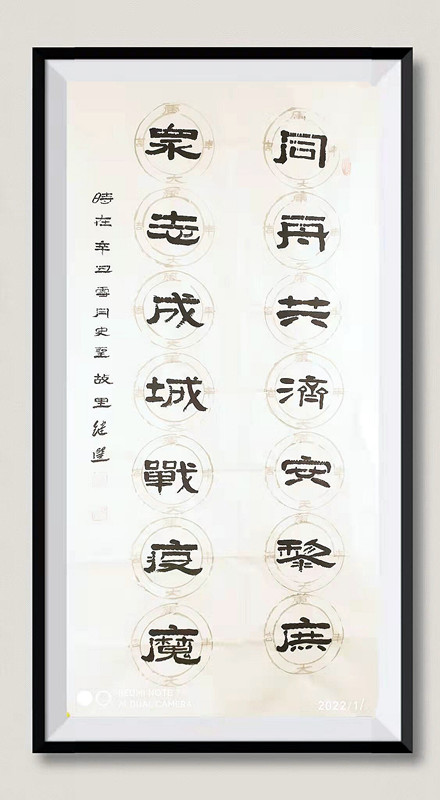 同舟共濟安黎庶
衆志成城戰疫魔
時在辛丑雪月史聖故里
REDMI NOTE
AI DUAL CAMERA
2022/1/